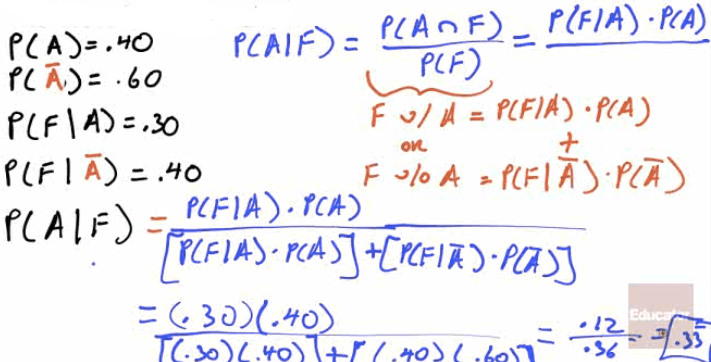 P(A)=.40
P(Ā)=.60
P(F|A)=.30
P(F|Ā)=.40
P(A|F) = P(A∩F)/P(F) = P(F|A)·P(A)
F w/ A = P(F|A)·P(A)
or +
F w/o A = P(F|Ā)·P(Ā)
P(A|F) = P(F|A)·P(A)
[P(F|A)·P(A)]+[P(F|Ā)·P(Ā)]
= (.30)(.40)
[(.30)(.40)]+[(.40)(.60)] = .12/.36 = .33
Educator